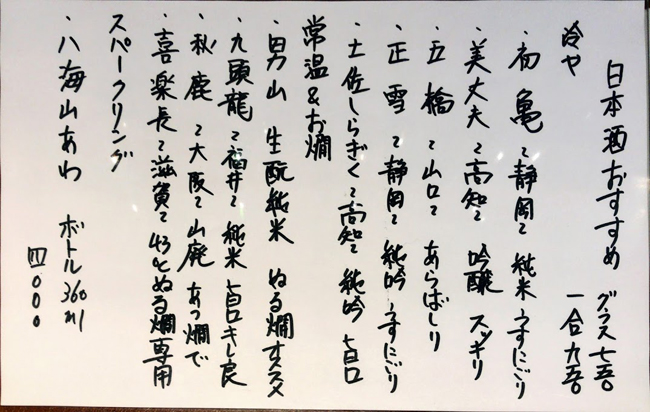 日本酒おすすめ グラス七五〇
一合九五〇
冷や
・初亀〜静岡〜 純米うすにごり
・美丈夫〜高知〜 吟醸 スッキリ
・五橋〜山口〜 あらばしり
・正雪〜静岡〜 純吟うすにごり
・土佐しらぎく〜高知〜 純吟 旨口
常温&お燗
・男山 生酛純米 ぬる燗オススメ
・九頭龍〜福井〜 純米 旨口キレ良
・秋鹿〜大阪〜 山廃 あつ燗で
・喜楽長〜滋賀〜 43℃ぬる燗専用
スパークリング
・八海山あわ ボトル360ml
四〇〇〇